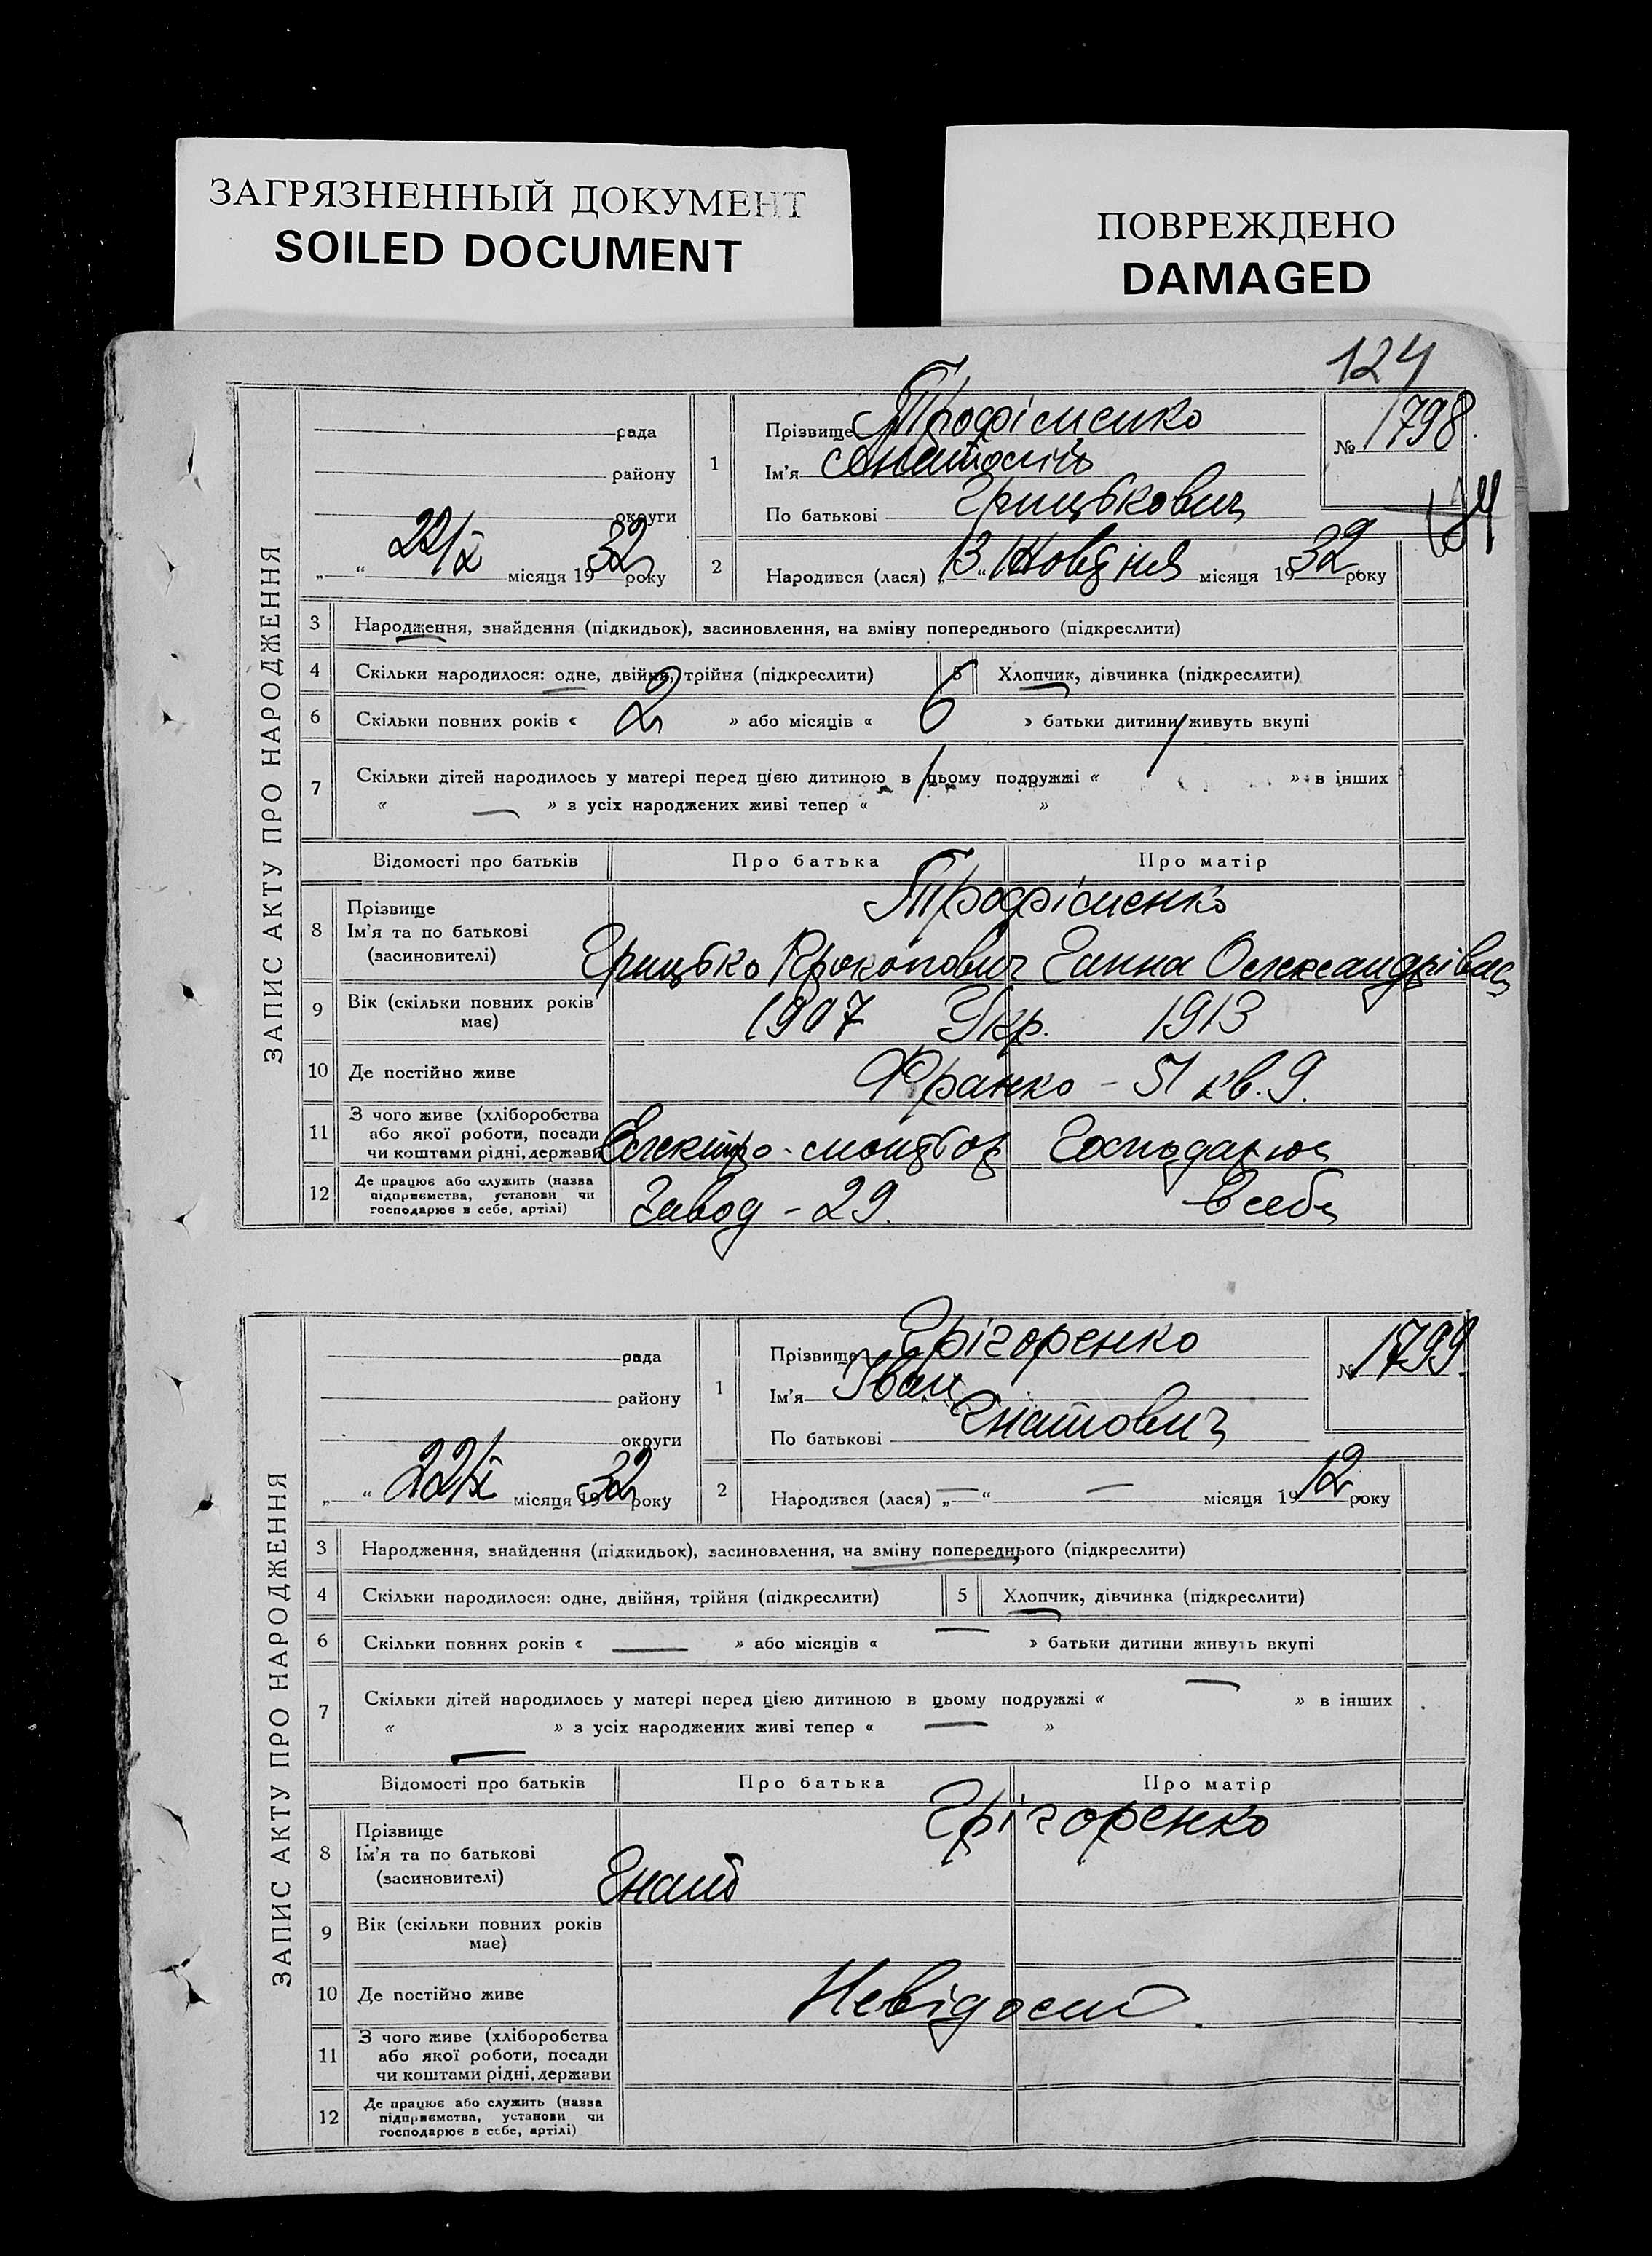 ЗАГРЯЗНЕННЫЙ ДОКУМЕНТ
SOILED DOCUMENT
ПОВРЕЖДЕНО
DAMAGED
124
ЗАПИС АКТУ ПРО НАРОДЖЕННЯ
рада
району
округи
„ “ 22/X місяця 1932 року
1 Прізвище Трофіменко
Ім'я Анатолій
По батькові Грицькович
№ 1798.
2 Народився (лася) „13“ Жовтня місяця 1932 року
3 Народження, знайдення (підкидьок), засиновлення, на зміну попереднього (підкреслити)
4 Скільки народилося: одне, двійня, трійня (підкреслити) 5 Хлопчик, дівчинка (підкреслити)
6 Скільки повних років « 2 » або місяців « 6 » батьки дитини живуть вкупі
7 Скільки дітей народилось у матері перед цією дитиною в цьому подружжі « » в інших
« — » з усіх народжених живі тепер « »
Відомості про батьків Про батька Про матір
8 Прізвище
Ім'я та по батькові
(засиновителі)
Трофіменко
Грицько Прокопович Ганна Олександрівна
9 Вік (скільки повних років має) 1907 Укр. 1913
10 Де постійно живе Франко - 51 кв. 9.
11 З чого живе (хліборобства
або якої роботи, посади
чи коштами рідні, держави
Електро-монтьор Господарює
12 Де працює або служить (назва
підприємства, установи чи
господарює в себе, артілі)
Завод - 29. в себе
ЗАПИС АКТУ ПРО НАРОДЖЕННЯ
рада
району
округи
„ “ 22/X місяця 1932 року
1 Прізвище Грігоренко
Ім'я Іван
По батькові Гнатович
№ 1799.
2 Народився (лася) „—“ — місяця 1912 року
3 Народження, знайдення (підкидьок), засиновлення, на зміну попереднього (підкреслити)
4 Скільки народилося: одне, двійня, трійня (підкреслити) 5 Хлопчик, дівчинка (підкреслити)
6 Скільки повних років « — » або місяців « — » батьки дитини живуть вкупі
7 Скільки дітей народилось у матері перед цією дитиною в цьому подружжі « — » в інших
« — » з усіх народжених живі тепер « — »
Відомості про батьків Про батька Про матір
8 Прізвище
Ім'я та по батькові
(засиновителі)
Грігоренко
Гнат
9 Вік (скільки повних років має)
10 Де постійно живе Невідомі
11 З чого живе (хліборобства
або якої роботи, посади
чи коштами рідні, держави
12 Де працює або служить (назва
підприємства, установи чи
господарює в себе, артілі)